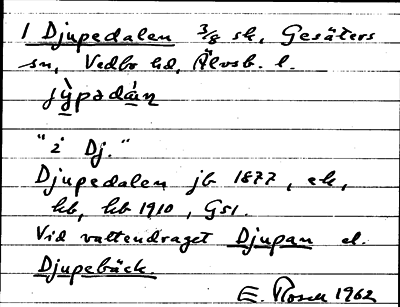 1 Djupedalen 3/8 sk, Gesäters
sn, Vedbo hd, Älvsb. l.
jỳpədán
"i Dj."
Djupedalen jb 1877, ek,
hb, kb 1910, GS1.
Vid vattendraget Djupan el.
Djupebäck.
E. Rosell 1962